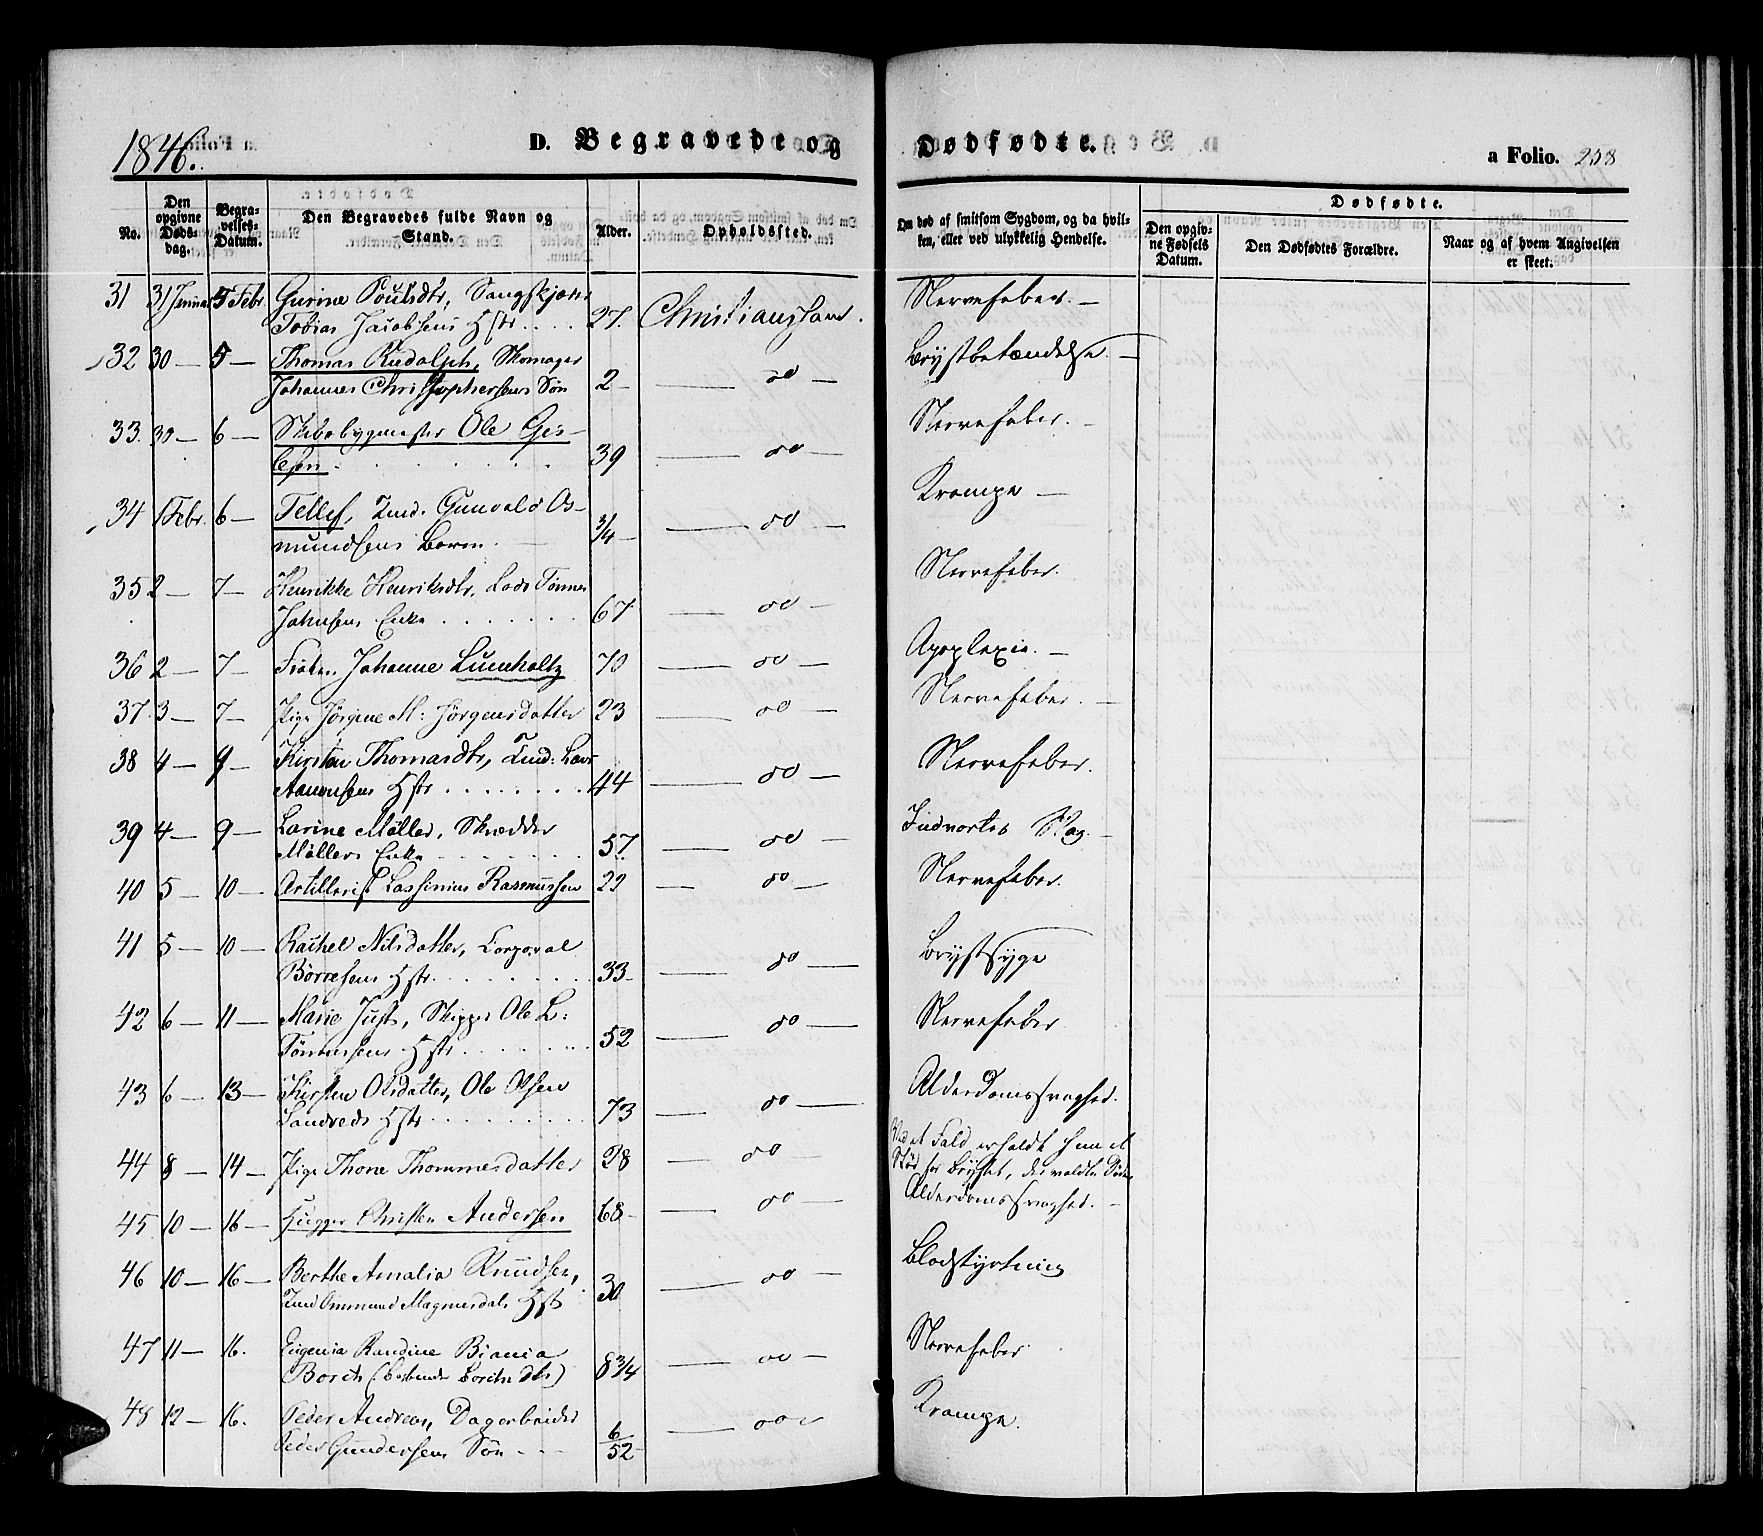 1846.
D. Begravede og Dødfødte.
a Folio. 258
No.
Den opgivne Døds-dag.
Begra-velses-Datum.
Den Begravedes fulde Navn og Stand.
Alder.
Opholdssted.
Om død af smitsom Sygdom, og da hvil-ken, eller ved ulykkelig Hendelse.
Dødfødte.
Den opgiv-ne Fødsels Datum.
Den Dødfødtes Forældre.
Naar og af hvem Angivelsen er skeet.
31 31 5 Febr. Gurine
Tobias Jacobsens Hstr. 27. Christianssand. Nervefeber. —
32 30 — 5 — Thomas Rudolph, Skomager
Johannes Christophersens Søn 2 — do — Brystbetændelse. —
33. 30 — 6 — Skibsbygmester Ole Gis-
lesen 39 — do — Nervefeber. —
34 1 Febr. 6 — Tellef, Gunvald Os-
mundsens Barn. — 3/4 — do — Krampe —
35 2 — 7 — Henrikke Henriksdtr, Lods Tønnes
Johnsens Enke 67 — do — Nervefeber.
36 2 — 7 — Frøken Johanne Lumholtz 70 — do — Apoplexie. —
37. 3 — 7 — Pige Jørgine M: Jørgensdatter 23 — do — Nervefeber. —
38 4 — 9 — Kirsten Thomasdtr,
Aanensens Hstr 44 — do — Nervefeber.
39 4 — 9 — Larine Møller, Skrædder
Møllers Enke 57 — do — Indvortes Slag. —
40 5 — 10 — Artillerist Rasmussen 22 — do — Nervefeber.
41 5 — 10 — Rachel Nilsdatter, Corporal
Børresens Hstr. 33 — do — Brystsyge
42 6 — 11 — Marie Just, Skipper Ole L:
Tønnesens Hstr. 52 — do — Nervefeber
43 6 — 13 — Kirsten Olsdatter, Ole Olsen
Hstr 73 — do — Alderdomssvaghed.
44 8 — 14 — Pige Thone Thommesdatter 28 — do — Ved et Fald erholdt hun et
Stød for Brystet, der voldte Døden
45 10 — 16 — Christen Andersen 68 — do — Alderdomssvaghed. —
46 10 — 16 — Berthe Amalia Knudsen,
Hstr 30 — do — Blodstyrtning
47 11 — 16. Eugenia Randine
Borch 8 3/4 — do — Nervefeber
48 12 — 16. Peder Andreas, Dagarbeider
Peder Gundersens Søn 6/52 — do — Krampe.